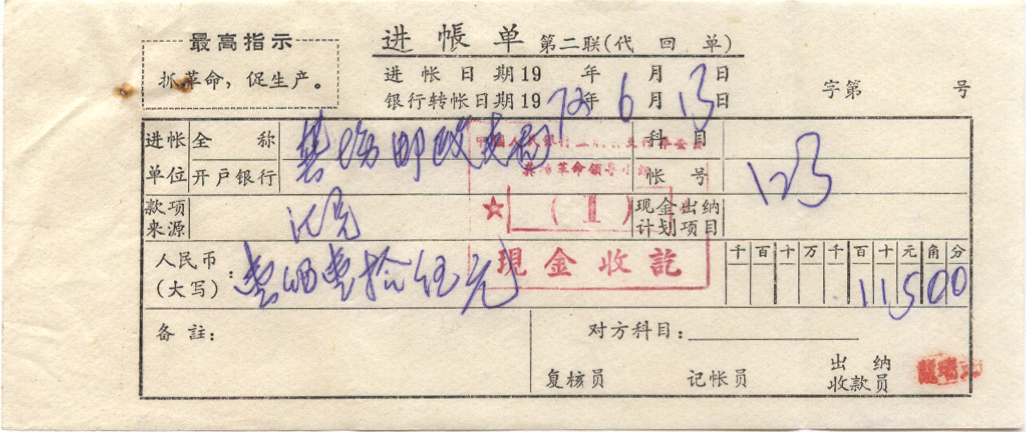 最高指示
抓革命，促生产。
进帐单 第二联(代回单)
进帐日期19 年 月 日
银行转帐日期1972年6月13日
字第 号
进帐单位
全称
邮政支局
科目
开户银行
帐号
123
款项来源
汇兑
现金出纳计划项目
中国人民银行
革命领导小组
★ (1)
现金收讫
人民币(大写):
壹佰壹拾伍元
千百十万千百十元角分
11500
备註:
对方科目:
复核员
记帐员
出纳收款员